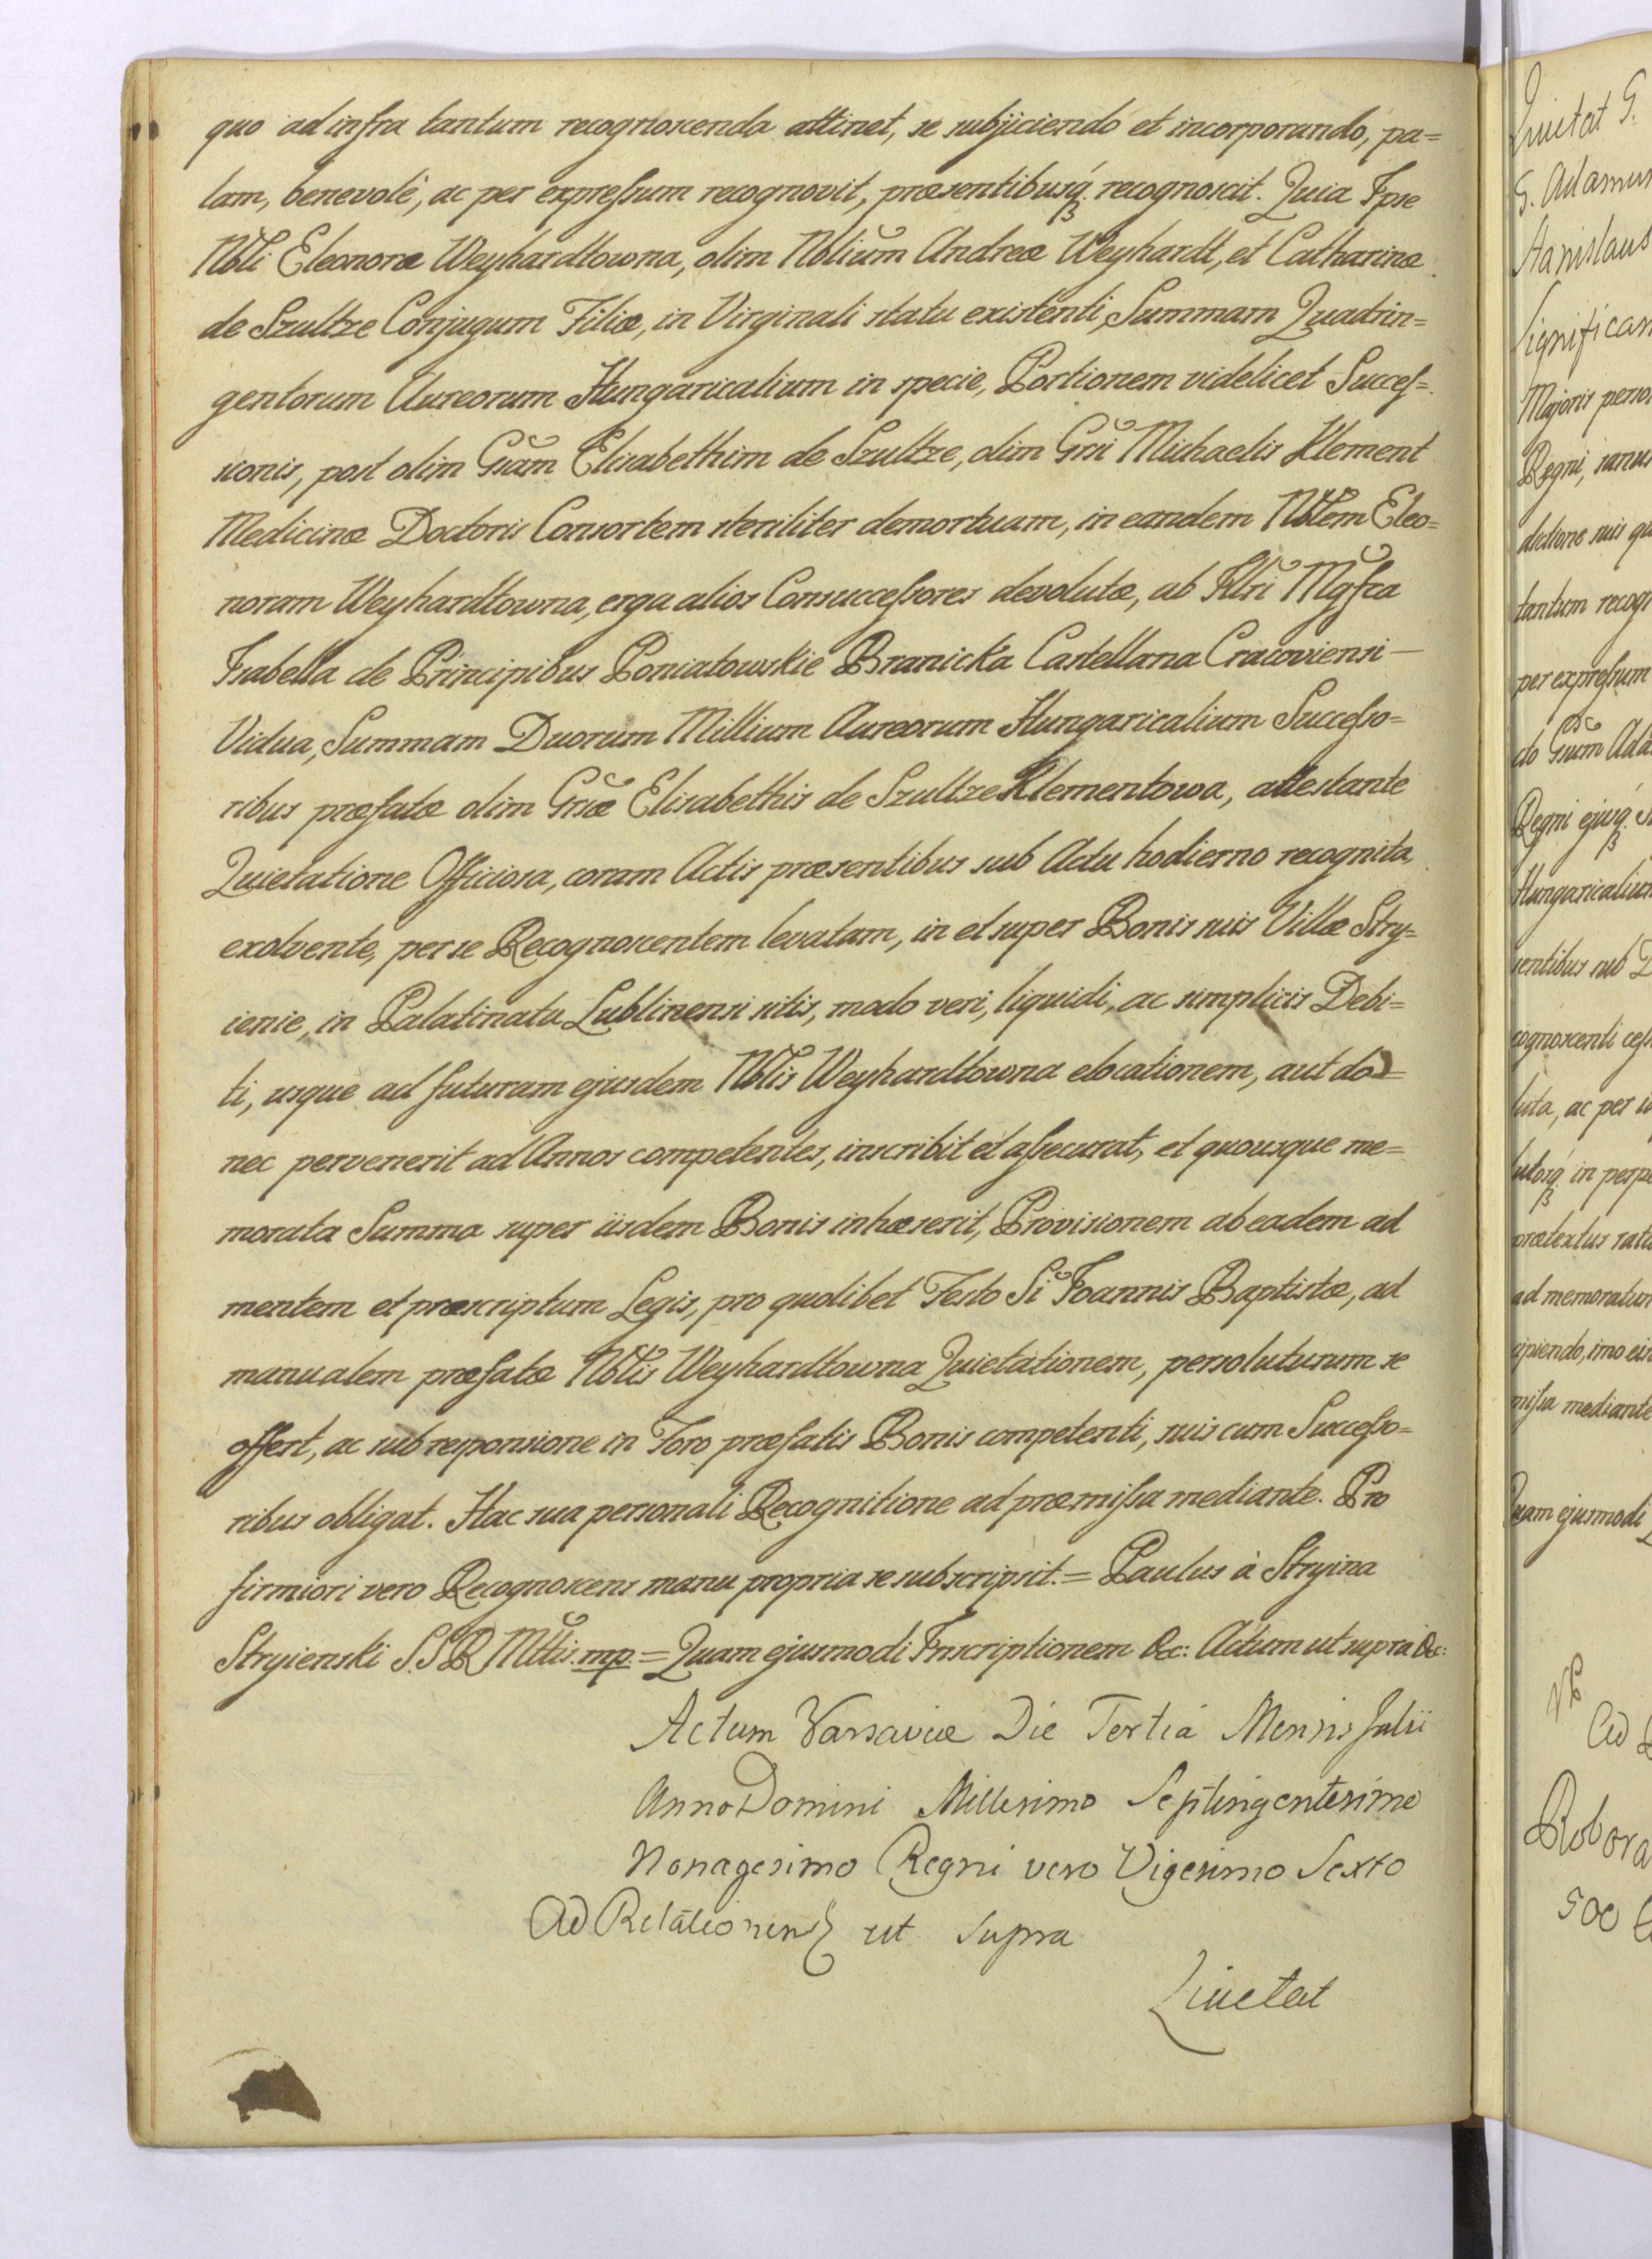 quo ad infra tantum recognoscenda attinet, se subjiciendo et incorporando, pa=
lam, benevolè, ac per expressum recognovit, præsentibusq́ recognoscit. Quia Ipse
Nbli Eleonoræ Weyhardtowna, olim Nblium Andreæ Weyhardt, et Catharinæ
de Szultze Conjugum Filiæ, in Virginali statu existenti, Summam Quadrin=
gentorum Aureorum Hungaricalium in specie, Portionem videlicet Succes=
sionis, post olim Gsam Elisabethim de Szultze, olim Gsi Michaelis Klement
Medicinæ Doctoris Consortem steriliter demortuam, in eandem Nblem Eleo=
noram Weyhardtowna, erga alios Consuccessores devolutæ, ab Illri Mgfca
Isabella de Principibus Poniatowskie Branicka Castellana Cracoviensi —
Vidua, Summam Duorum Millium Aureorum Hungaricalium Successo=
ribus præfatæ olim Gsæ Elisabethis de Szultze Klementowa, attestante
Quietatione Officiosa, coram Actis præsentibus sub Actu hodierno recognita
exolvente, per se Recognoscentem levatam, in et super Bonis suis Villæ Stry=
ienie, in Palatinatu Lublinensi sitis, modo veri, liquidi, ac simplicis Debi=
ti, usque ad futuram ejusdem Nblis Weyhardtowna elocationem, aut do=
nec pervenerit ad Annos competentes, inscribit et assecurat, et quousque me=
morata Summa super iisdem Bonis inhæserit, Provisionem ab eadem ad
mentem et præscriptum Legis, pro quolibet Festo Si Joannis Baptistæ, ad
manualem præfatæ Nblis Weyhardtowna Quietationem, persoluturum se
offert, ac sub responsione in Foro præfatis Bonis competenti, suis cum Successo=
ribus obligat. Hac sua personali Recognitione ad præmissa mediante. Pro
firmiori vero Recognoscens manu propria se subscripsit. = Paulus à Stryina
Stryienski S.S.R. Mttis. mp. = Quam ejusmodi Inscriptionem &c: Actum ut supra &c:
Actum Varsaviæ Die Tertiá Mensis Julii
Anno Domini Millesimo Septingentesimo
Nonagesimo Regni vero Vigesimo Sexto
Ad Relationem ut supra
Quietat
Quietat G.
G. Adamus
Stanislaus
Significan
Majoris perso
Regni, sanus
dictione suis qu
tantum recog
per expressum
do Gsum Ada
Regni ejusq́
Hungaricalium
sentibus sub D
cognoscenti ces
luta, ac per
in perpe
prætextus
ad memoratum
imo
missa mediante
Quam ejusmodi
Ad
Robora
500